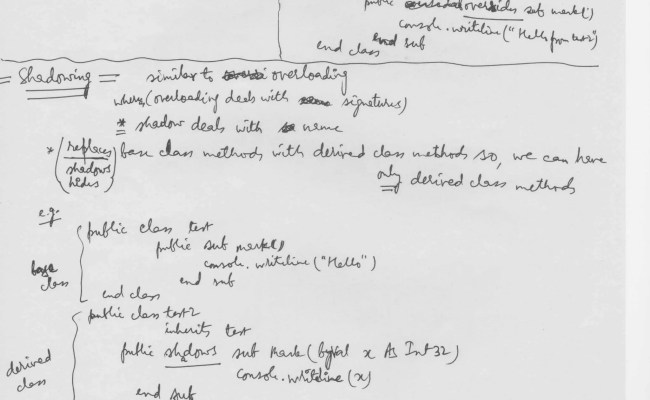 public overrides sub mark()
console.writeline("Hello from test")
end sub
end class
= Shadowing = similar to overloading
where (overloading deals with signatures)
* shadow deals with name
* (replaces shadows hides) base class methods with derived class methods so, we can here
only derived class methods
e.g:
public class test
public sub mark()
console.writeline("Hello")
end sub
base class
end class
public class test2
inherits test
public shadows sub mark(byval x As Int32)
console.writeline(x)
derived class
end sub